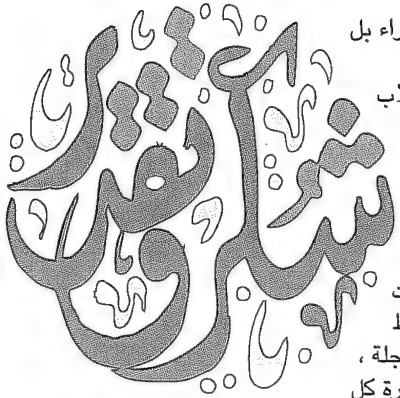 شكر وتقدير
راء بل
ﻼب
ت
ط
جلة ،
رة كل